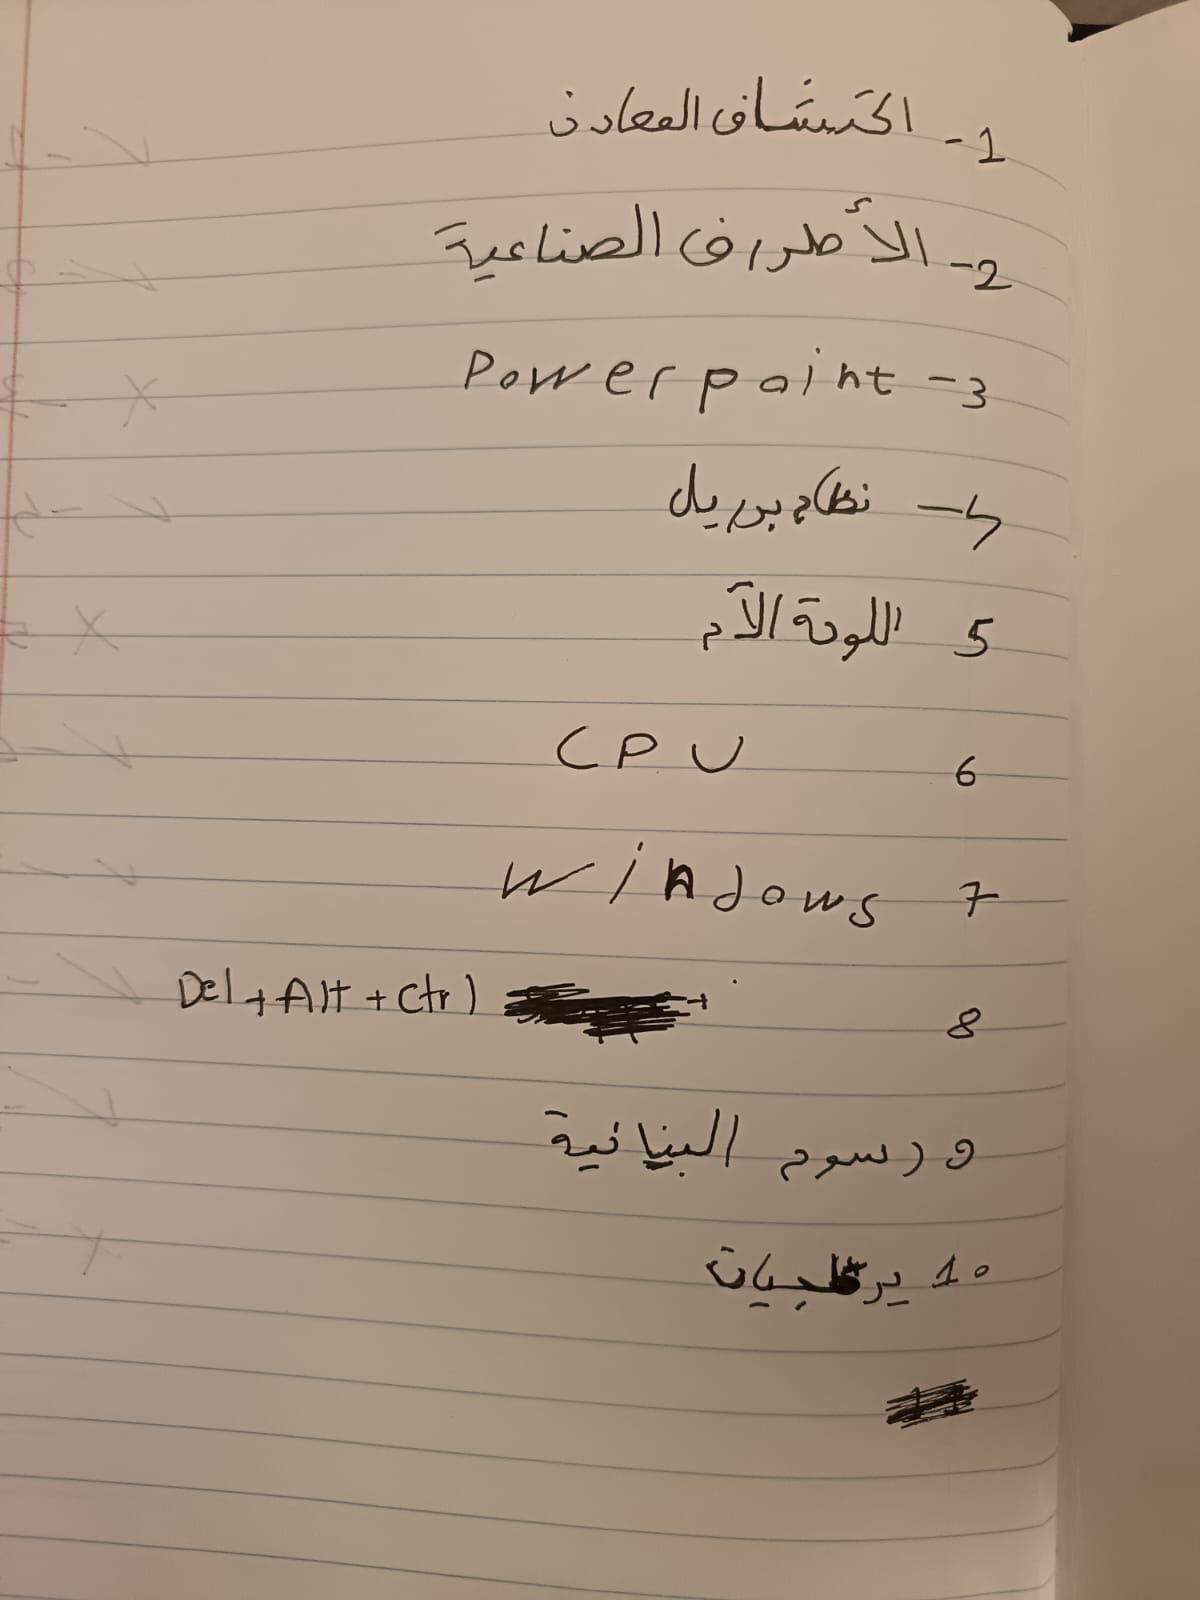 1- اكتشاف المعادن
2- الأطراف الصناعية
3- Powerpoint
4- نظام بريل
5 اللوحة الآم
6 CPU
7 windows
8 Del + Alt + Ctrl
9 رسوم البيانية
10 برمجيات